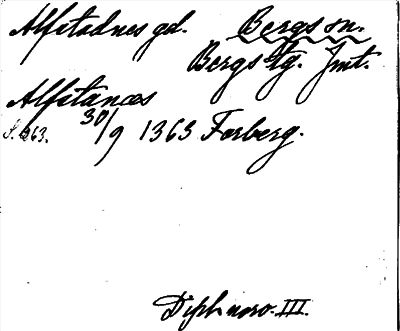 Alfstadnes gd. Bergs sn.
Bergs tg. Jmt.
Alfstanæs
S. 263. 30/9 1363 Farberg.
Diplnorv. III.